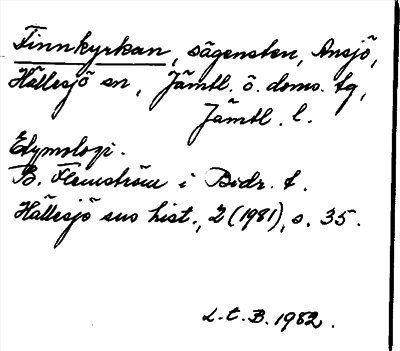 Finnkyrkan, sägensten, Ansjö,
Hällesjö sn, Jämtl. ö. doms. tg,
Jämtl. l.
Etymologi.
B. Flemström i Bidr. t.
Hällesjö sns hist., 2 (1981), s. 35.
L.t.B. 1982.